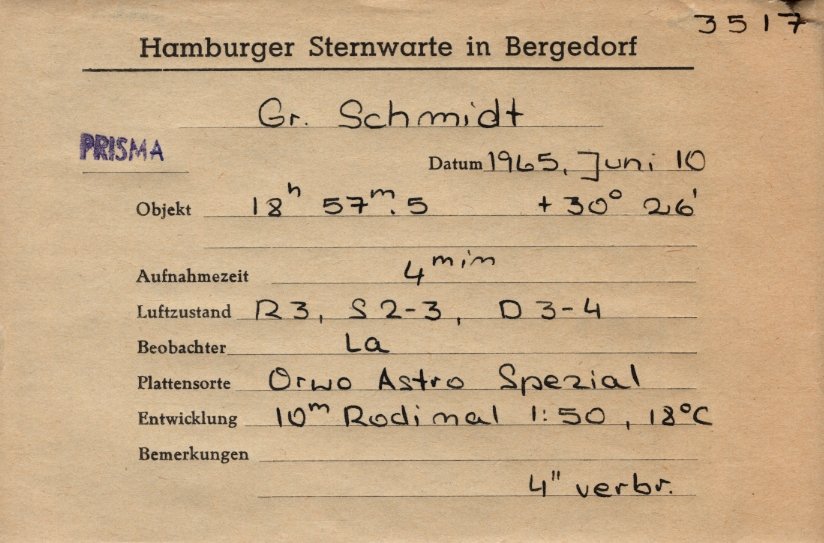 3517
Hamburger Sternwarte in Bergedorf
Gr. Schmidt
PRISMA
Datum 1965, Juni 10
Objekt 18ʰ 57ᵐ.5 +30° 26'
Aufnahmezeit 4ᵐⁱⁿ
Luftzustand R3, S 2-3, D 3-4
Beobachter La
Plattensorte Orwo Astro Spezial
Entwicklung 10ᵐ Rodinal 1:50, 18°C
Bemerkungen
4" verbr.